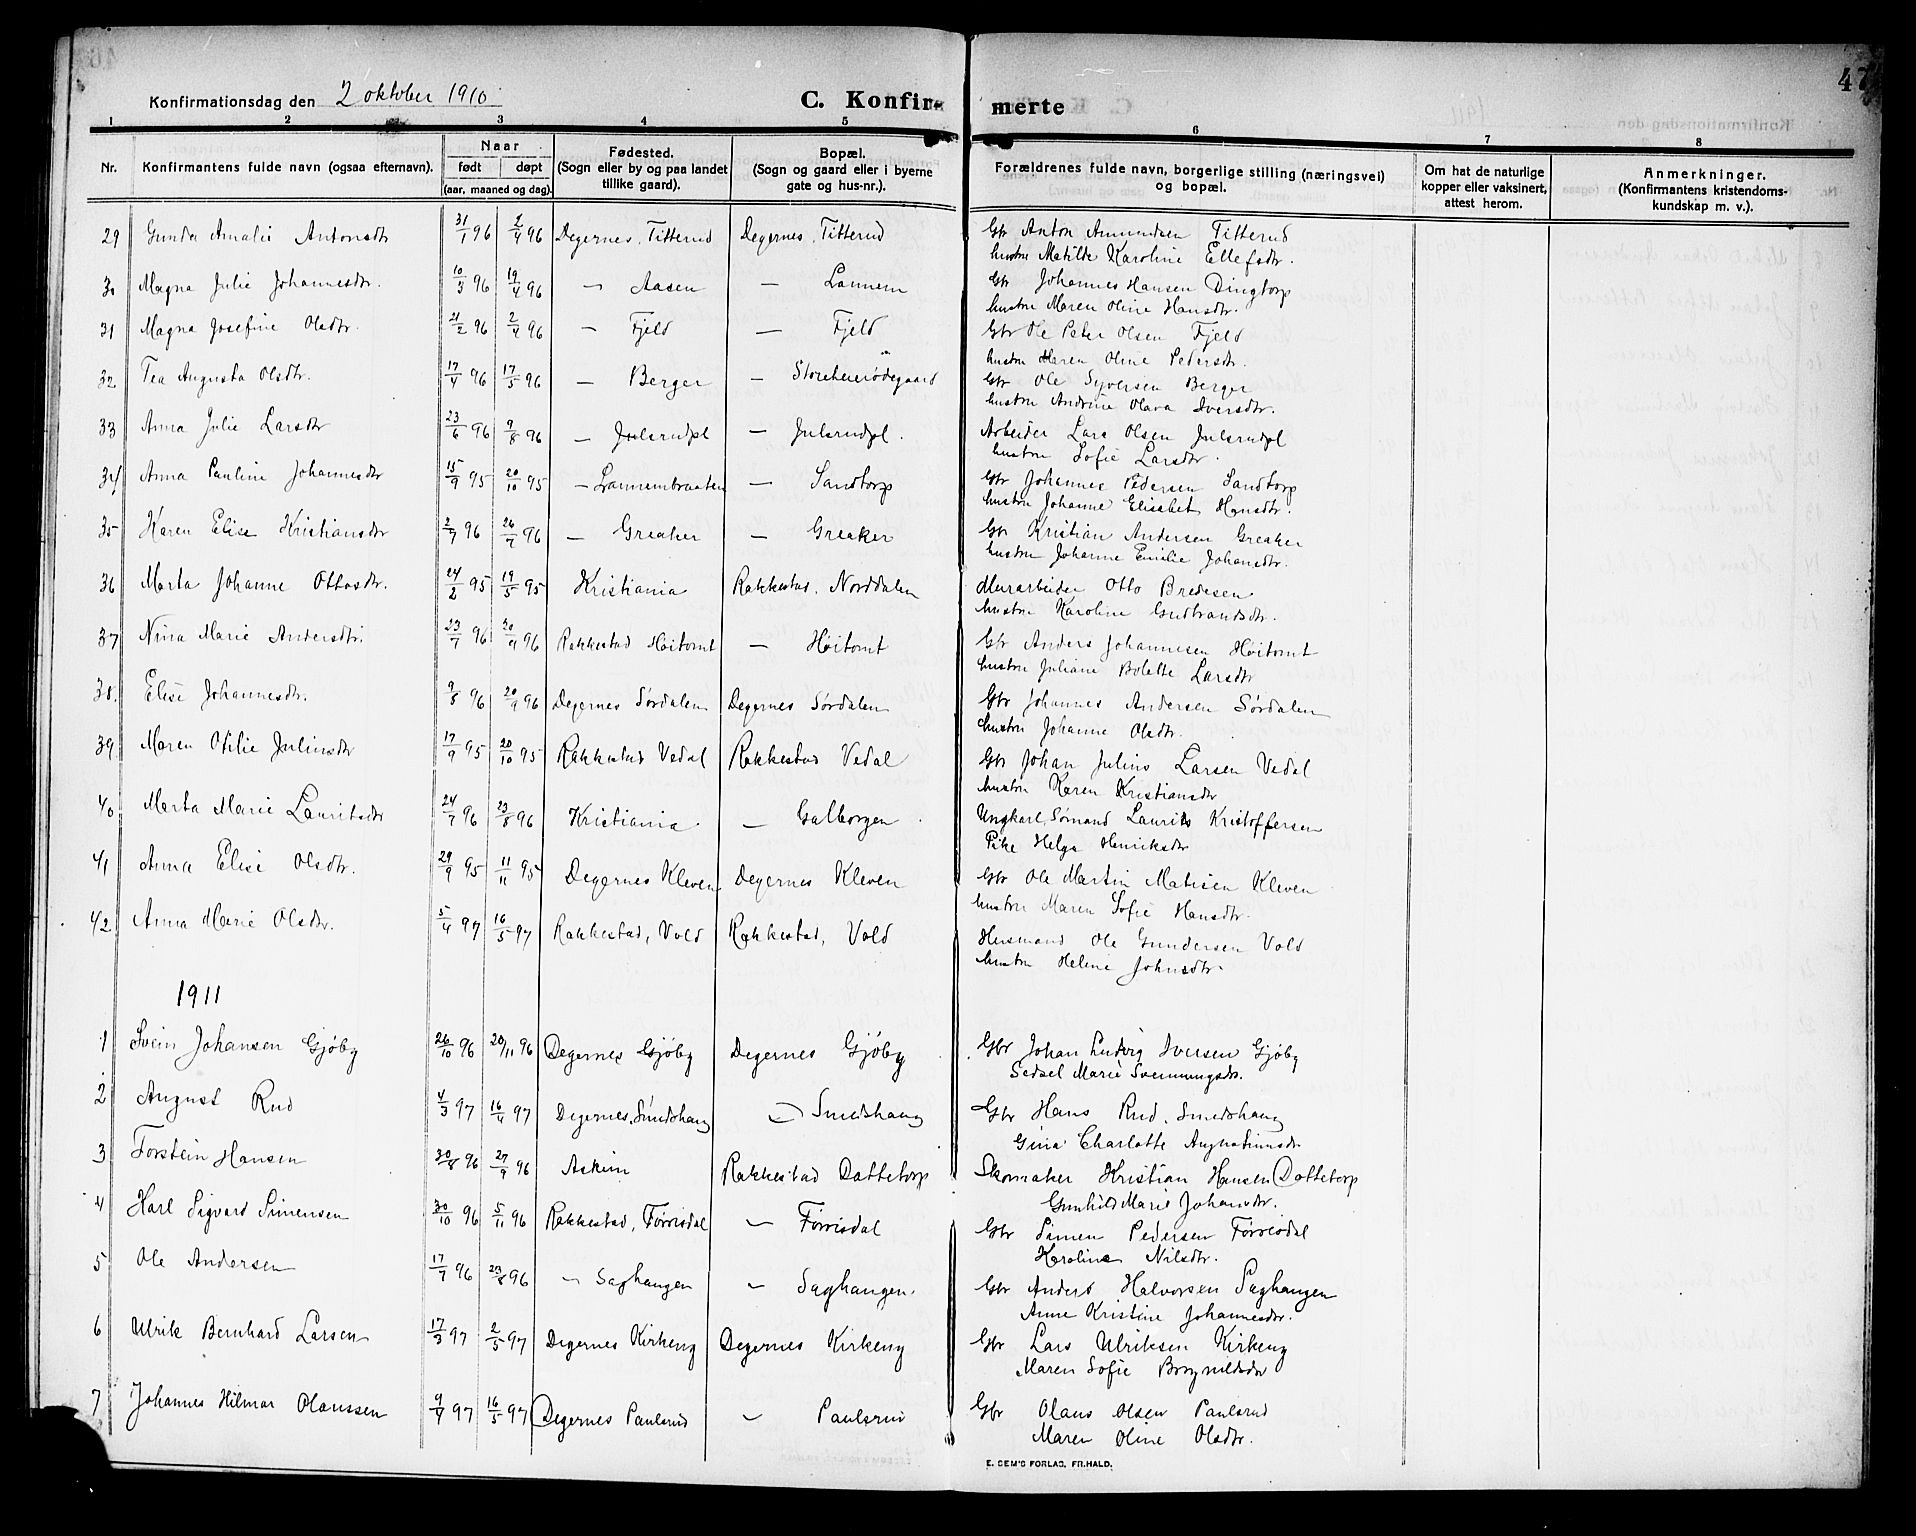 47
Konfirmationsdag den 2 oktober 1910 C. Konfirmerte
1 2 3 4 5 6 7 8
Nr. Konfirmantens fulde navn (ogsaa efternavn). Naar født døpt (aar, maaned og dag). Fødested. (Sogn eller by og paa landet tillike gaard). Bopæl. (Sogn og gaard eller i byerne gate og hus-nr.). Forældrenes fulde navn, borgerlige stilling (næringsvei) og bopæl. Om hat de naturlige kopper eller vaksinert, attest herom. Anmerkninger. (Konfirmantens kristendomskundskap m. v.).
29 Gunda Amalie Antonsdtr 31/1 96 2/4 96 Degernes, Titterud Degernes, Titterud Gbr Anton Amundsen Titterud
hustru Matilde Karoline Ellefsdtr.
30 Magna Julie Johannesdtr. 10/3 96 19/4 96 — Aasen — Lannem Gbr Johannes Hansen Dingtorp
hustru Maren Oline Hansdtr.
31 Magna Josefine Olsdtr. 21/2 96 2/4 96 — Fjeld — Fjeld Gbr Ole Peter Olsen Fjeld
hustru Maren Oline Pedersdtr.
32 Tea Augusta Olsdtr. 17/4 96 17/5 96 — Berger — Gbr Ole Syversen Berger
hustru Andrine Olava Iversdtr.
33 Anna Julie Larsdtr 23/6 96 9/8 96 — Julsrudpl — Julsrudpl. Arbeider Lars Olsen Julsrudpl
hustru Sofie Larsdtr.
34 Anna Pauline Johannesdtr 15/9 95 20/10 95 — Lannembraaten — Sandtorp Gbr Johannes Pedersen Sandtorp
hustru Johanne Elisabet Hansdtr.
35 Karen Elise Kristiansdtr 2/7 96 26/7 96 — Greaker — Greaker Gbr Kristian Andersen Greaker
hustru Johanne Emilie Johansdtr.
36 Marta Johanne Ottosdtr. 24/2 95 19/5 95 Kristiania Rakkestad, Norddalen Murarbeider Otto Bredesen
hustru Karoline Gudbrandsdtr.
37 Nina Marie Andersdtr. 23/7 96 20/9 96 Rakkestad Høitomt — Høitomt Gbr Anders Johannesen Høitomt
hustru Juliane Bolette Larsdtr
38. Elise Johannesdtr. 9/8 96 20/9 96 Degernes Sørdalen Degernes Sørdalen Gbr Johannes Andersen Sørdalen
hustru Johanne Olsdtr.
39. Maren Otilie Juliusdtr 17/9 95 20/10 95 Rakkestad Vedal Rakkestad Vedal Gbr Johan Julius Larsen Vedal
hustru Karen Kristiansdtr
40 Marta Marie Lauritsdtr 24/7 96 23/8 96 Kristiania. — Galborgen. Ungkarl, Sømand Laurits Kristoffersen
Pike Helga Henriksdtr
41 Anna Elise Olsdtr. 29/9 95 11/11 95 Degernes Kleven Degernes Kleven Gbr Ole Martin Matisen Kleven
hustru Maren Sofie Hansdtr.
42 Anna Marie Olsdtr. 5/4 97 16/5 97 Rakkestad, Vold Rakkestad, Vold Husmand Ole Gundersen Vold
hustru Helene Johnsdtr.
1911
1 Svein Johansen Gjøby 26/10 96 20/11 96 Degernes Gjøby Degernes Gjøby Gbr Johan Ludvig Iversen Gjøby
Sedsel Marie Svenningsdtr.
2 August Rud 4/3 97 16/4 97 Degernes, Smedshaug — Smedshaug Gbr Hans Rud, Smedshaug
Gina Charlotte Augustinusdtr
3 Torstein Hansen 30/8 96 27/9 96 Askim Rakkestad Dattetorp Skomaker Kristian Hansen Dattetorp
Gunhild Marie Johansdtr.
4 Karl Sigvard Simensen 30/10 96 5/11 96 Rakkestad, Førrisdal — Førrisdal Gbr Simen Pedersen Førrisdal
Karoline Nilsdtr.
5 Ole Andersen 17/7 96 23/8 96 — Saghaugen — Saghaugen. Gbr Anders Halvorsen Saghaugen
Anne Kristine Johannesdtr.
6 Ulrik Bernhard Larsen 17/3 97 2/5 97 Degernes Kirkeng Degernes Kirkeng Gbr Lars Ulriksen Kirkeng
Maren Sofie
7 Johannes Hilmar Olaussen 9/4 97 16/5 97 Degernes Paulsrud — Paulsrud Gbr Olaus Olsen Paulsrud
Maren Oline Olsdtr.
E. SEM'S FORLAG, FR.HALD.